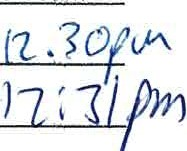 12.30pm
12:31pm